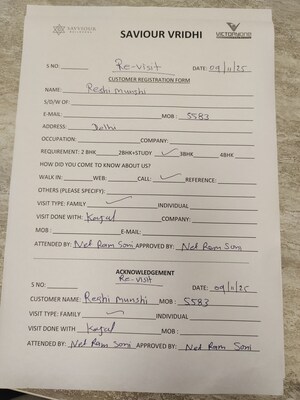 SAVIOUR
SAVIOUR VRIDHI
VICTORYONE
S NO: Re-visit DATE: 09/11/25
CUSTOMER REGISTRATION FORM
NAME: Reshi munshi
S/D/W OF:
E-MAIL: MOB: 5583
ADDRESS: Delhi
OCCUPATION: COMPANY:
REQUIREMENT: 2 BHK 2BHK+STUDY ✓ 3BHK 4BHK
HOW DID YOU COME TO KNOW ABOUT US?
WALK IN: WEB: CALL: ✓ REFERENCE:
OTHERS (PLEASE SPECIFY):
VISIT TYPE: FAMILY ✓ INDIVIDUAL
VISIT DONE WITH: COMPANY:
MOB : E-MAIL:
ATTENDED BY: Net Ram Soni APPROVED BY: Net Ram Soni
ACKNOWLEDGEMENT
S NO: Re-visit DATE: 09/11/25
CUSTOMER NAME: Reshi munshi MOB : 5583
VISIT TYPE: FAMILY ✓ INDIVIDUAL
VISIT DONE WITH MOB :
ATTENDED BY: Net Ram Soni APPROVED BY: Net Ram Soni